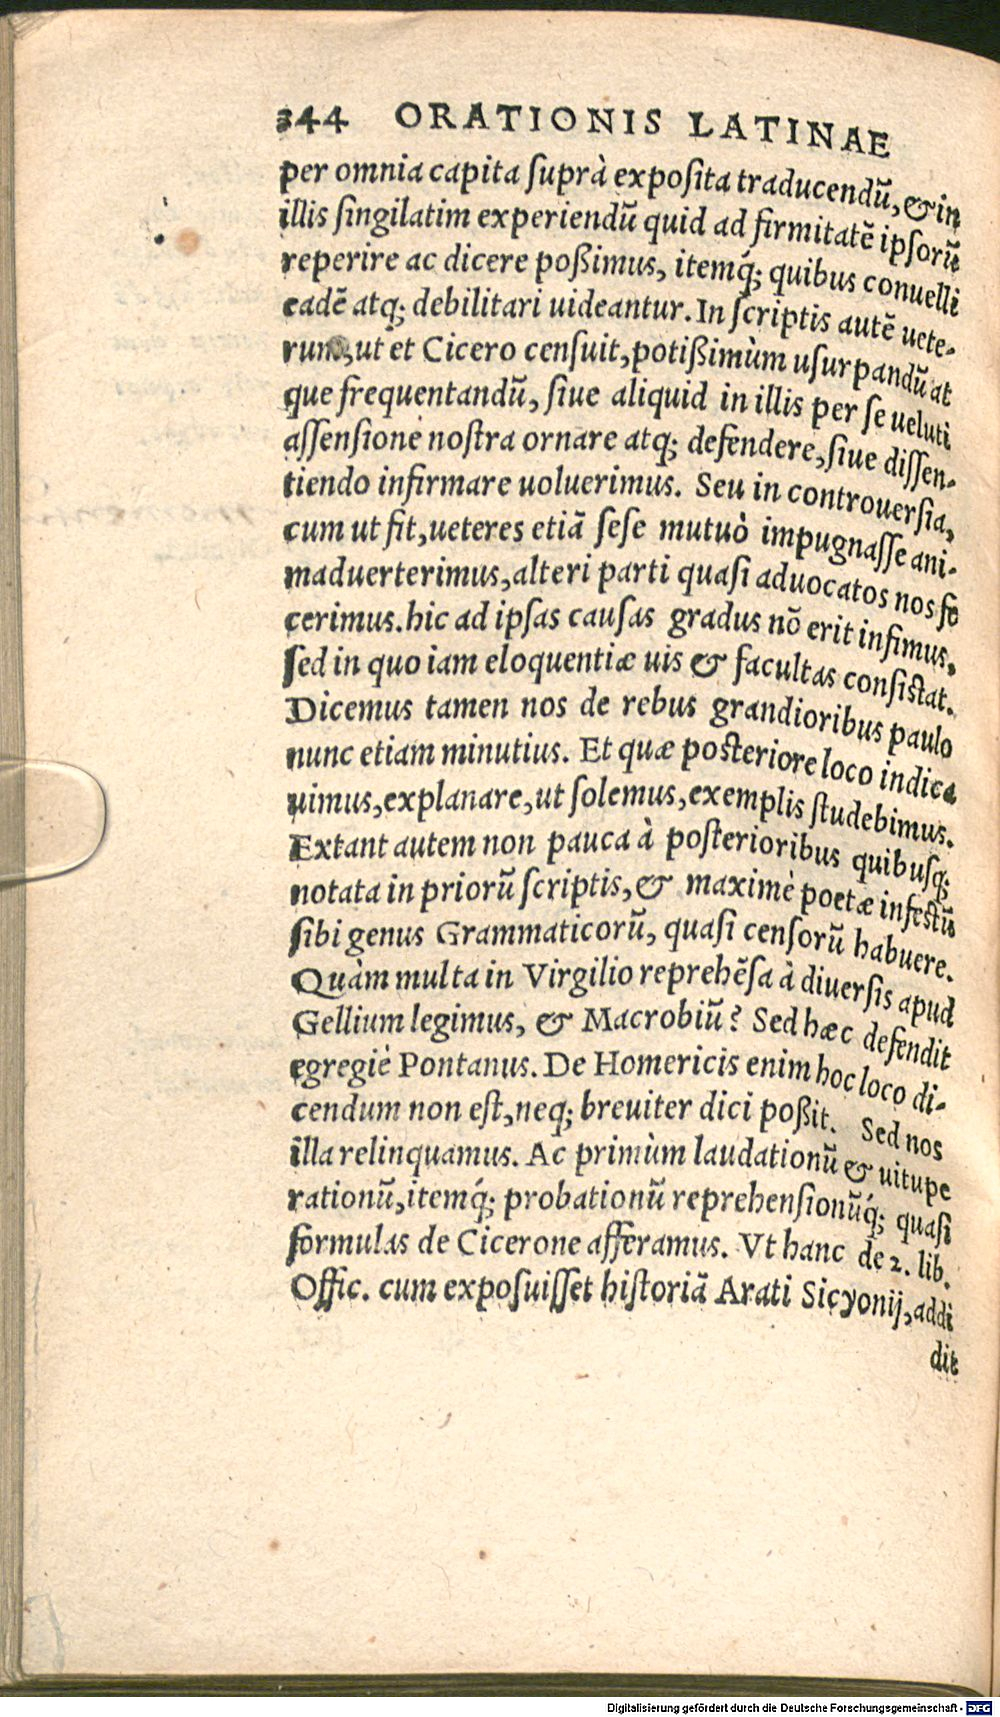 344 ORATIONIS LATINAE
per omnia capita ſuprà expoſita traducendũ, & in
illis ſingilatim experiendũ quid ad firmitatẽ ipſorũ
reperire ac dicere poßimus, itemq́; quibus conuelli
eadẽ atq; debilitari uideantur. In ſcriptis autẽ uete-
rum, ut et Cicero cenſuit, potißimùm uſurpandũ at
que frequentandũ, ſiue aliquid in illis per ſe ueluti
aſſenſione noſtra ornare atq; defendere, ſiue diſſen-
tiendo infirmare uoluerimus. Seu in controuerſia,
cum ut fit, ueteres etiã ſeſe mutuò impugnaſſe ani-
maduerterimus, alteri parti quaſi aduocatos nos fe
cerimus. hic ad ipſas cauſas gradus nõ erit infimus,
ſed in quo iam eloquentiæ uis & facultas conſiſtat.
Dicemus tamen nos de rebus grandioribus paulo
nunc etiam minutius. Et quæ poſteriore loco indica
uimus, explanare, ut ſolemus, exemplis ſtudebimus.
Extant autem non pauca à poſterioribus quibuſq;
notata in priorũ ſcriptis, & maximè poetæ infeſtũ
ſibi genus Grammaticorũ, quaſi cenſorũ habuere.
Quàm multa in Virgilio reprehẽſa à diuerſis apud
Gellium legimus, & Macrobiũ? Sed hæc defendit
egregiè Pontanus. De Homericis enim hoc loco di-
cendum non eſt, neq; breuiter dici poßit. Sed nos
illa relinquamus. Ac primùm laudationũ & uitupe
rationũ, itemq́; probationũ reprehenſionũq́; quaſi
formulas de Cicerone afferamus. Vt hanc de 2. lib.
Offic. cum expoſuiſſet hiſtoriã Arati Sicyonij, addi
dit
Digitalisierung gefördert durch die Deutsche Forschungsgemeinschaft - DFG